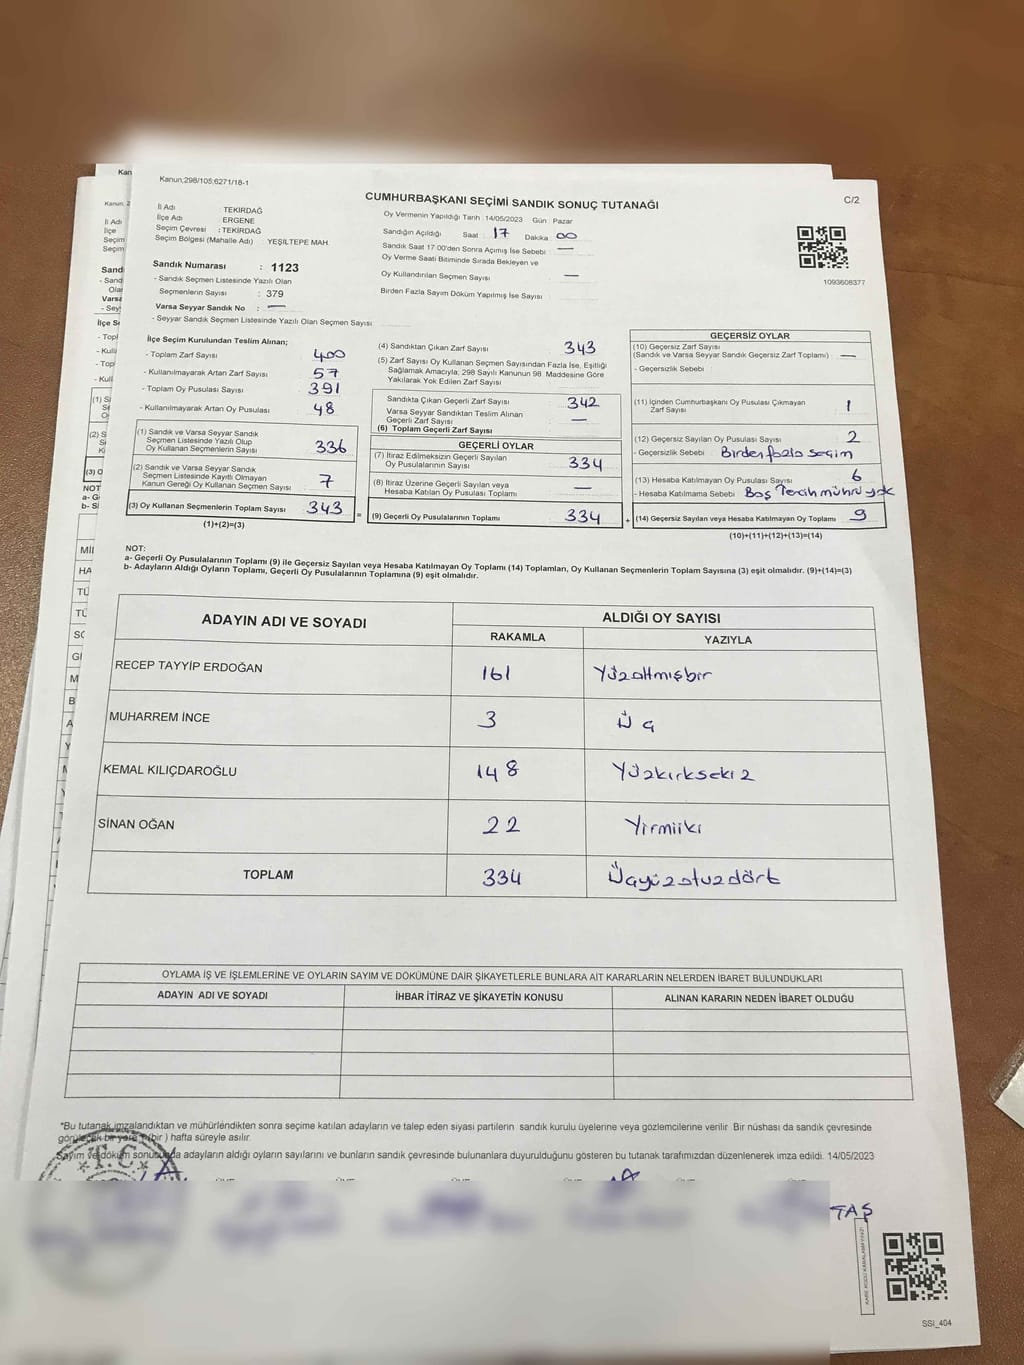 Kanun;298/105;6271/18-1
CUMHURBAŞKANI SEÇİMİ SANDIK SONUÇ TUTANAĞI
C/2
İl Adı : TEKİRDAĞ
İlçe Adı : ERGENE
Seçim Çevresi : TEKİRDAĞ
Seçim Bölgesi (Mahalle Adı) YEŞİLTEPE MAH.
Sandık Numarası : 1123
- Sandık Seçmen Listesinde Yazılı Olan
Seçmenlerin Sayısı : 379
Varsa Seyyar Sandık No : —
- Seyyar Sandık Seçmen Listesinde Yazılı Olan Seçmen Sayısı:
Oy Vermenin Yapıldığı Tarih :14/05/2023 Gün : Pazar
Sandığın Açıldığı Saat : 17 Dakika 00
Sandık Saat 17:00'den Sonra Açımış İse Sebebi : —
Oy Verme Saati Bitiminde Sırada Bekleyen ve
Oy Kullandırılan Seçmen Sayısı : —
Birden Fazla Sayım Döküm Yapılmış İse Sayısı :
1093608377
İlçe Seçim Kurulundan Teslim Alınan;
- Toplam Zarf Sayısı : 400
- Kullanılmayarak Artan Zarf Sayısı : 57
- Toplam Oy Pusulası Sayısı : 391
- Kullanılmayarak Artan Oy Pusulası : 48
(1) Sandık ve Varsa Seyyar Sandık
Seçmen Listesinde Yazılı Olup
Oy Kullanan Seçmenlerin Sayısı : 336
(2) Sandık ve Varsa Seyyar Sandık
Seçmen Listesinde Kayıtlı Olmayan
Kanun Gereği Oy Kullanan Seçmen Sayısı : 7
(3) Oy Kullanan Seçmenlerin Toplam Sayısı : 343
(1)+(2)=(3)
(4) Sandıktan Çıkan Zarf Sayısı : 343
(5) Zarf Sayısı Oy Kullanan Seçmen Sayısından Fazla İse, Eşitliği
Sağlamak Amacıyla; 298 Sayılı Kanunun 98. Maddesine Göre
Yakılarak Yok Edilen Zarf Sayısı : —
Sandıkta Çıkan Geçerli Zarf Sayısı : 342
Varsa Seyyar Sandıktan Teslim Alınan
Geçerli Zarf Sayısı : —
(6) Toplam Geçerli Zarf Sayısı
GEÇERLİ OYLAR
(7) İtiraz Edilmeksizin Geçerli Sayılan
Oy Pusulalarının Sayısı : 334
(8) İtiraz Üzerine Geçerli Sayılan veya
Hesaba Katılan Oy Pusulası Toplamı : —
= (9) Geçerli Oy Pusulalarının Toplamı : 334 +
GEÇERSİZ OYLAR
(10) Geçersiz Zarf Sayısı
(Sandık ve Varsa Seyyar Sandık Geçersiz Zarf Toplamı) : —
- Geçersizlik Sebebi :
(11) İçinden Cumhurbaşkanı Oy Pusulası Çıkmayan
Zarf Sayısı : 1
(12) Geçersiz Sayılan Oy Pusulası Sayısı : 2
- Geçersizlik Sebebi : Birden fazla seçim
(13) Hesaba Katılmayan Oy Pusulası Sayısı : 6
- Hesaba Katılmama Sebebi : Boş Tercih mührü yok
(14) Geçersiz Sayılan veya Hesaba Katılmayan Oy Toplamı : 9
(10)+(11)+(12)+(13)=(14)
NOT:
a- Geçerli Oy Pusulalarının Toplamı (9) ile Geçersiz Sayılan veya Hesaba Katılmayan Oy Toplamı (14) Toplamları, Oy Kullanan Seçmenlerin Toplam Sayısına (3) eşit olmalıdır. (9)+(14)=(3)
b- Adayların Aldığı Oyların Toplamı, Geçerli Oy Pusulalarının Toplamına (9) eşit olmalıdır.
ADAYIN ADI VE SOYADI ALDIĞI OY SAYISI
RAKAMLA YAZIYLA
RECEP TAYYİP ERDOĞAN 161 Yüzaltmışbir
MUHARREM İNCE 3 Üç
KEMAL KILIÇDAROĞLU 148 Yüzkırksekiz
SİNAN OĞAN 22 Yirmiiki
TOPLAM 334 Üçyüzotuzdört
OYLAMA İŞ VE İŞLEMLERİNE VE OYLARIN SAYIM VE DÖKÜMÜNE DAİR ŞİKAYETLERLE BUNLARA AİT KARARLARIN NELERDEN İBARET BULUNDUKLARI
ADAYIN ADI VE SOYADI İHBAR İTİRAZ VE ŞİKAYETİN KONUSU ALINAN KARARIN NEDEN İBARET OLDUĞU
*Bu tutanak imzalandıktan ve mühürlendikten sonra seçime katılan adayların ve talep eden siyasi partilerin sandık kurulu üyelerine veya gözlemcilerine verilir. Bir nüshası da sandık çevresinde
görülecek bir yere 1 (bir ) hafta süreyle asılır.
Sayım ve döküm sonucunda adayların aldığı oyların sayılarını ve bunların sandık çevresinde bulunanlara duyurulduğunu gösteren bu tutanak tarafımızdan düzenlenerek imza edildi. 14/05/2023
T.C.
TAŞ
SSI_404